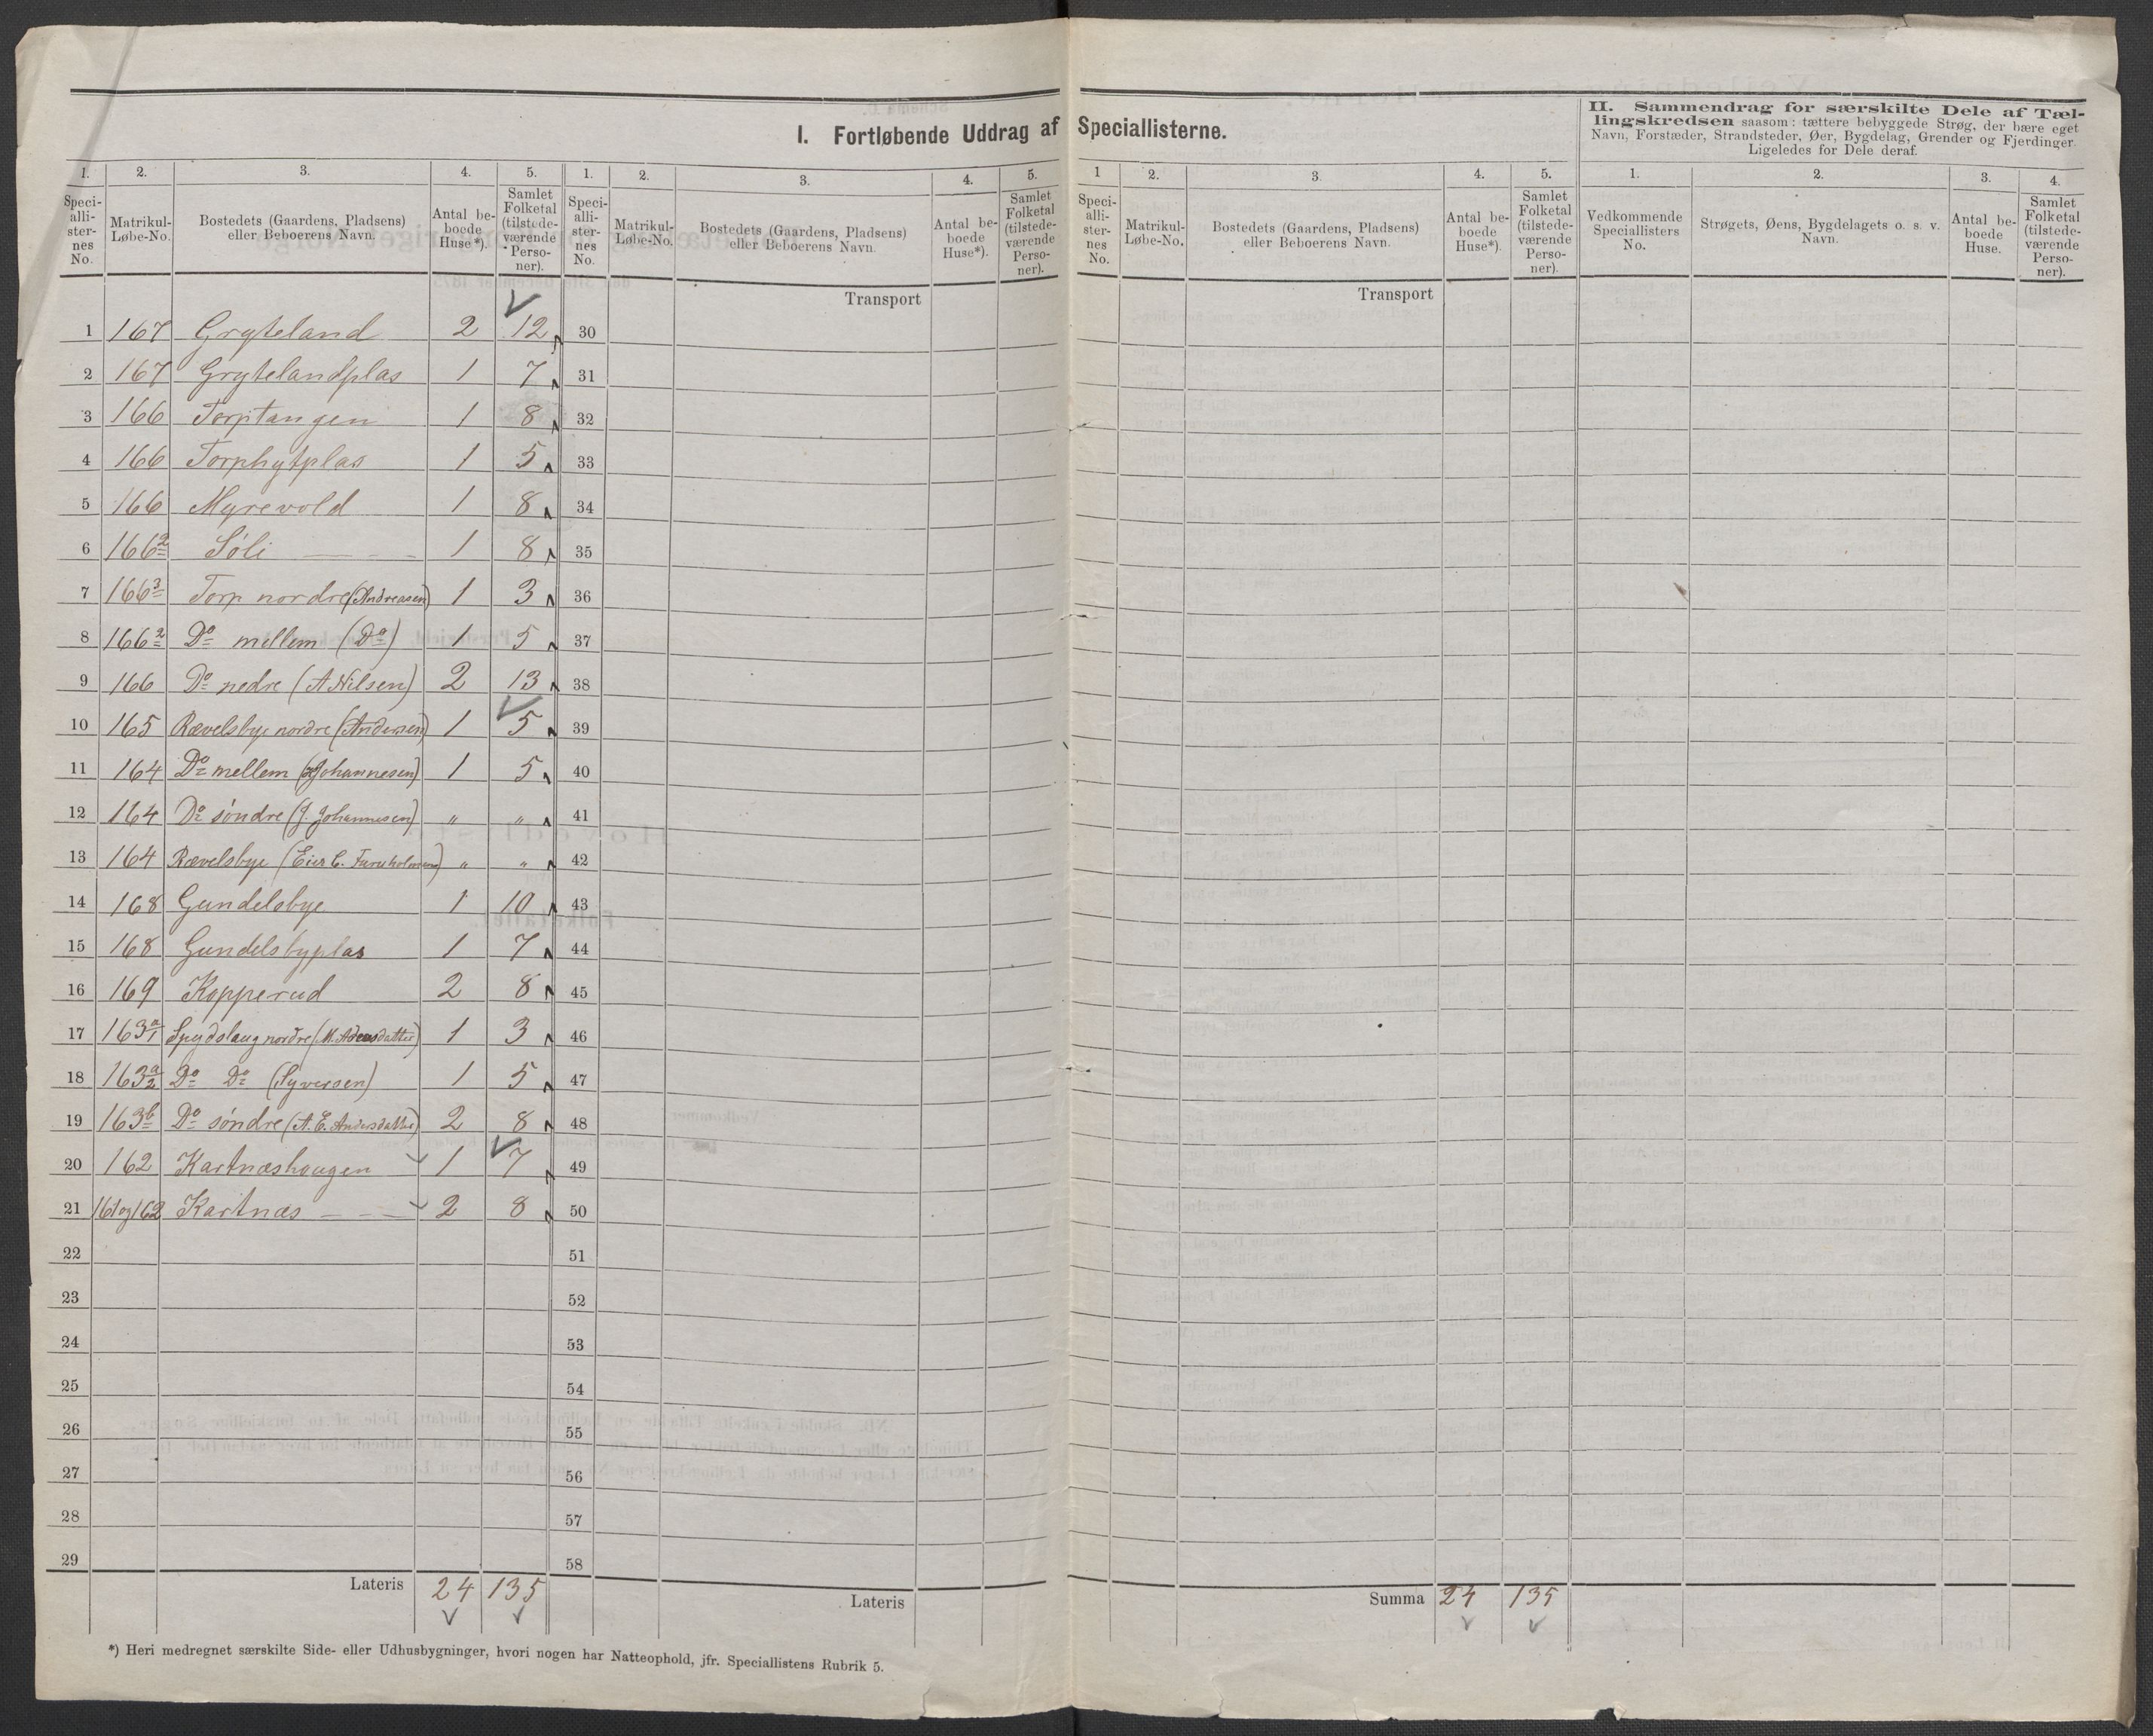 I. Fortløbende Uddrag af Speciallisterne.
II. Sammendrag for særskilte Dele af Tæl-
lingskredsen saasom: tættere bebyggede Strøg, der bære eget
Navn, Forstæder, Strandsteder, Øer, Bygdelag, Grender og Fjerdinger.
Ligeledes for Dele deraf.
1. 2. 3. 4. 5. 1. 2. 3. 4. 5. 1 2. 3. 4. 5. 1. 2. 3. 4.
Speci-
alli-
ster-
nes
No.
Matrikul-
Løbe-No.
Bostedets (Gaardens, Pladsens)
eller Beboerens Navn.
Antal be-
boede
Huse*).
Samlet
Folketal
(tilstede-
værende
Perso-
ner).
Speci-
alli-
ster-
nes
No.
Matrikul-
Løbe-No.
Bostedets (Gaardens, Pladsens)
eller Beboerens Navn.
Antal be-
boede
Huse*).
Samlet
Folketal
(tilstede-
værende
Perso-
ner).
Speci-
alli-
ster-
nes
No.
Matrikul-
Løbe-No.
Bostedets (Gaardens, Pladsens)
eller Beboerens Navn.
Antal be-
boede
Huse*).
Samlet
Folketal
(tilstede-
værende
Perso-
ner).
Vedkommende
Speciallisters
No.
Strøgets, Øens, Bygdelagets o. s. v.
Navn.
Antal be-
boede
Huse.
Samlet
Folketal
(tilstede-
værende
Perso-
ner).
Transport Transport
1 167 Gryteland 2 12 30
2 167 Grytelandplas 1 7 31
3 166 Torptangen 1 8 32
4 166 Torphytplas 1 5 33
5 166 Myrevold 1 8 34
6 166 2 Søli 1 8 35
7 166 3 Torp nordre (Andreasen) 1 3 36
8 166 2 Do mellem (Do) 1 5 37
9 166 Do nedre (A Nilsen) 2 13 38
10 165 Rævelsbye nordre (Andersen) 1 5 39
11 164 Do mellem (Johannesen) 1 5 40
12 164 Do søndre (J. Johannesen) " " 41
13 164 Rævelsbye (Eier C. Furuholmen) " " 42
14 168 Gundelsbye 1 10 43
15 168 Gundelsbyplas 1 7 44
16 169 Kopperud 2 8 45
17 163 a 1 Spydslaug nordre (M. datter) 1 3 46
18 163 a 2 Do Do (Syversen) 1 5 47
19 163 b Do søndre (A. E. Andersdatter) 2 8 48
20 162 Kartnæshaugen 1 7 49
21 161 og 162 Kartnæs 2 8 50
22 51
23 52
24 53
25 54
26 55
27 56
28 57
29 58
Lateris 24 135 Lateris Summa 24 135
*) Heri medregnet særskilte Side- eller Udhusbygninger, hvori nogen har Natteophold, jfr. Speciallistens Rubrik 5.